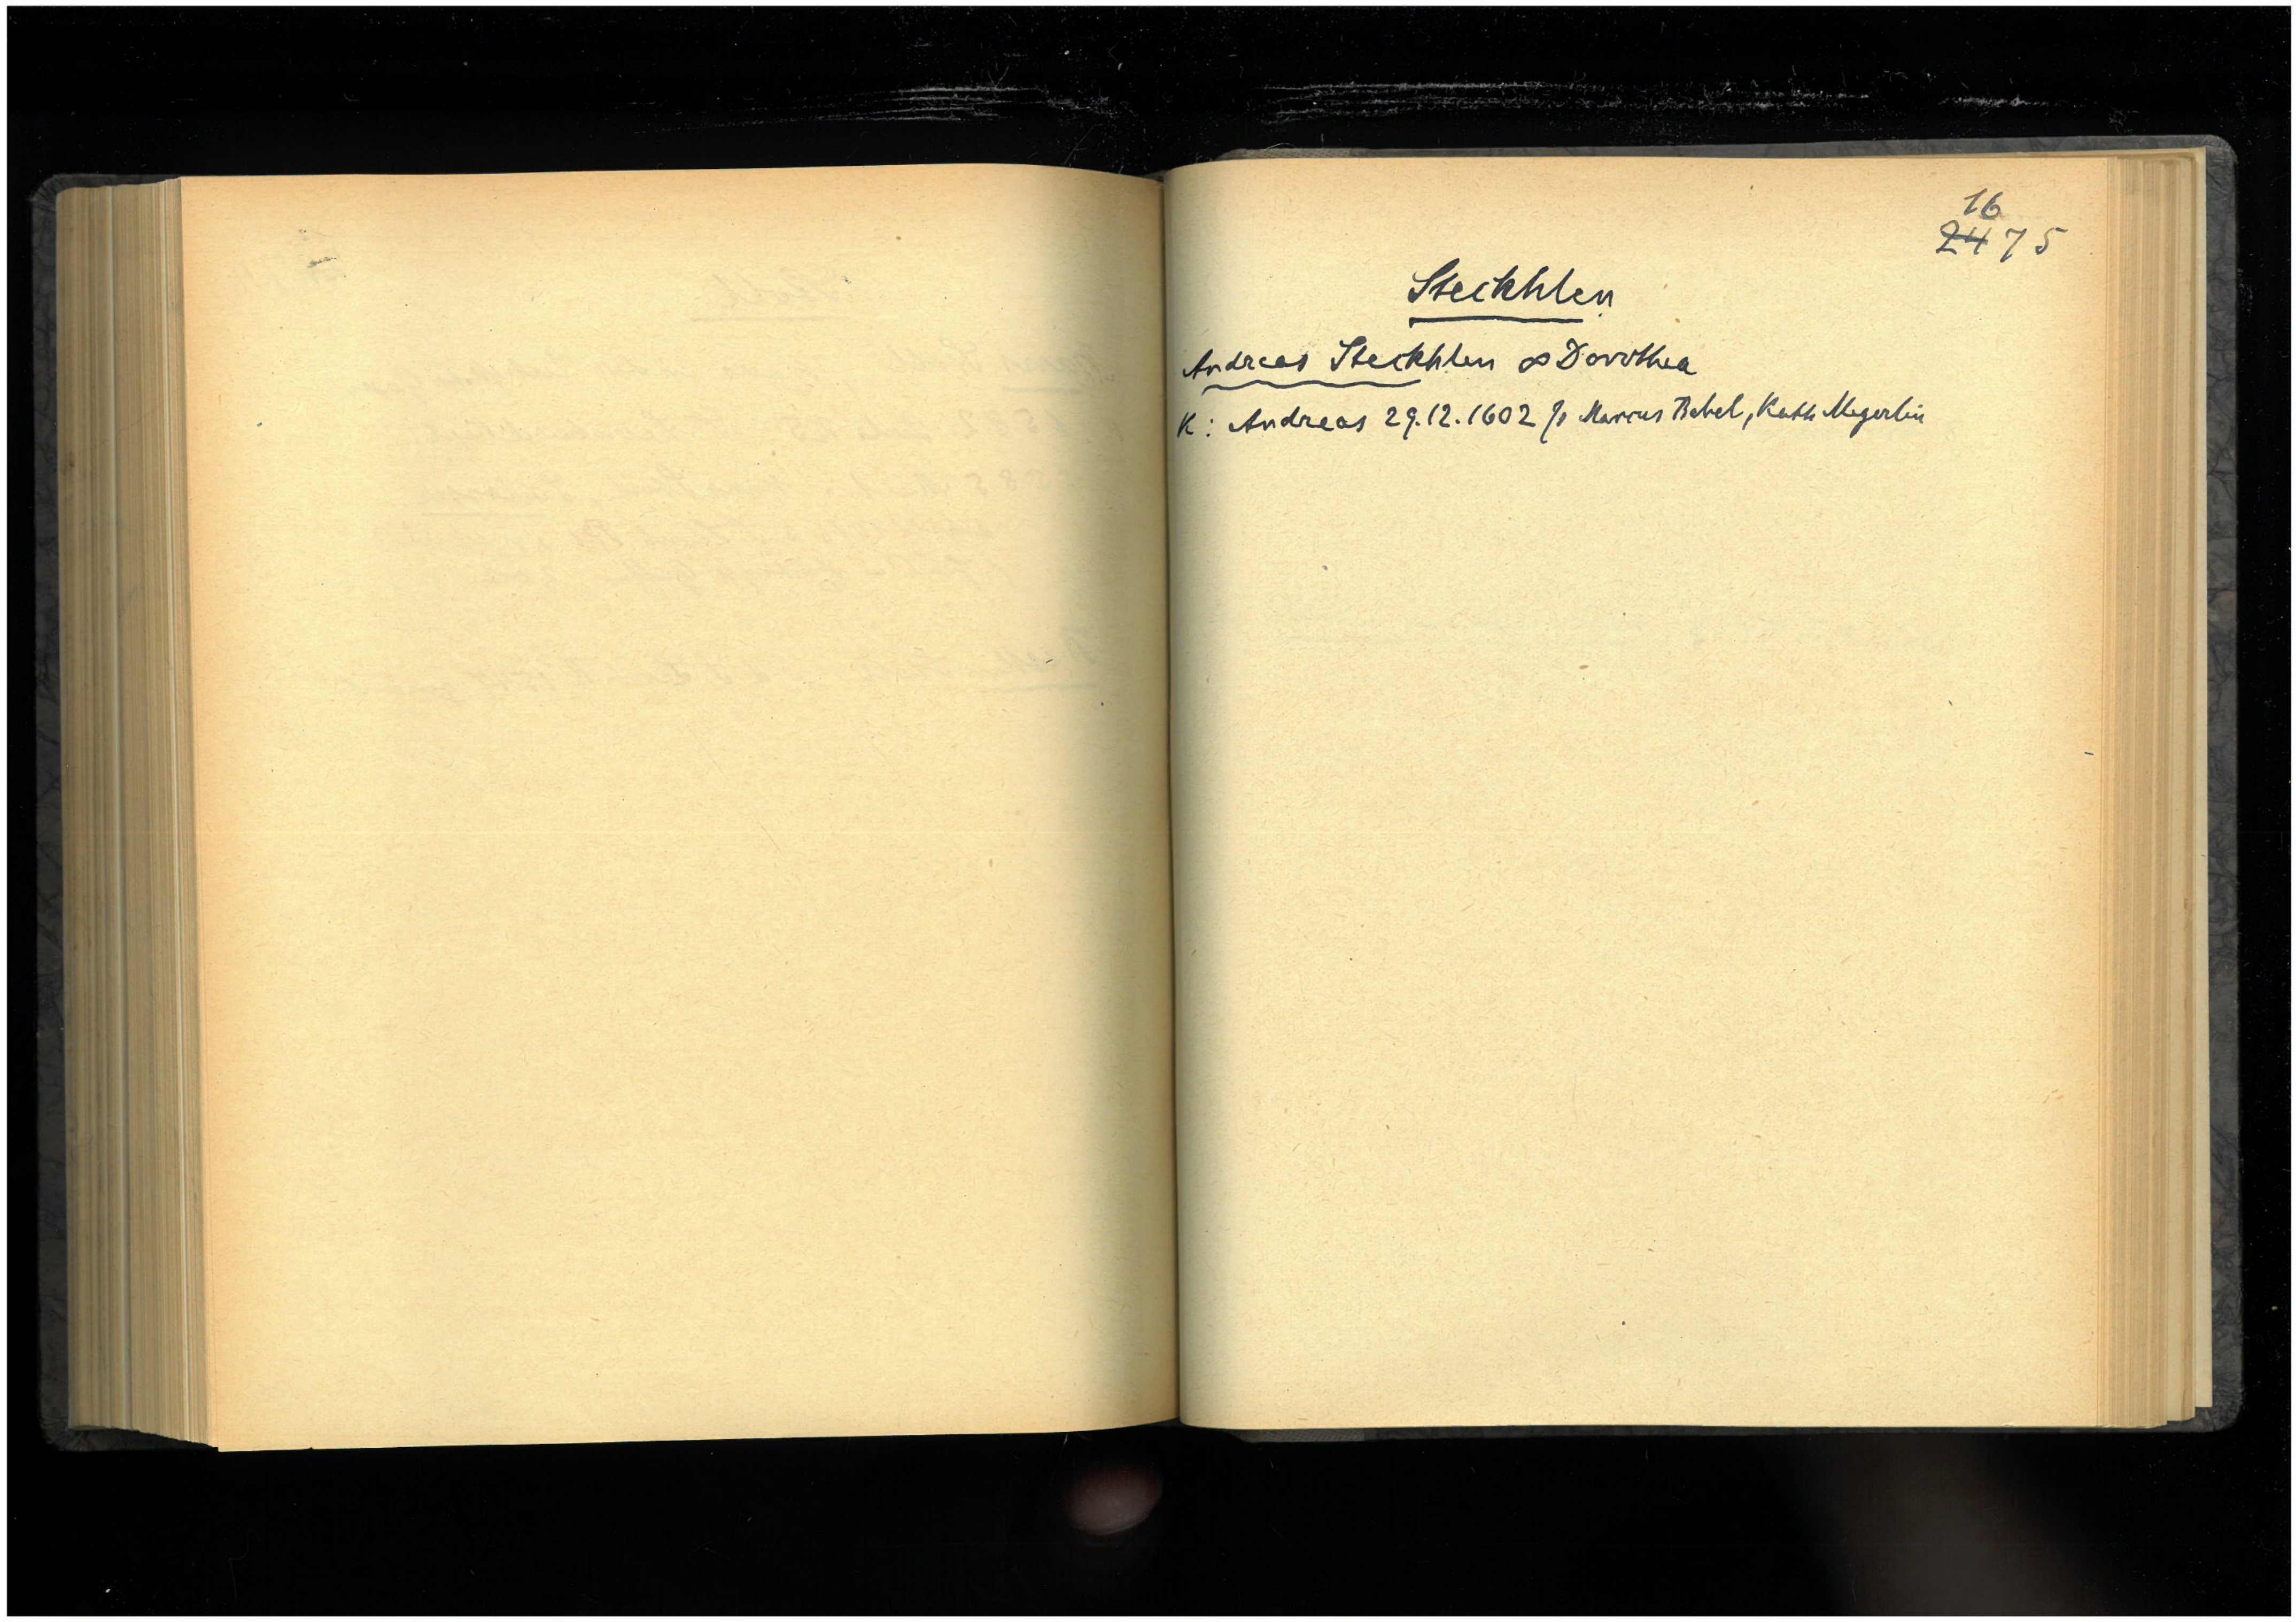 16
24 75
Steckhlen
Andreas Steckhlen ∞ Dorothea
K: Andreas 29.12.1602 Marcus Bebel, Kath Megerlin